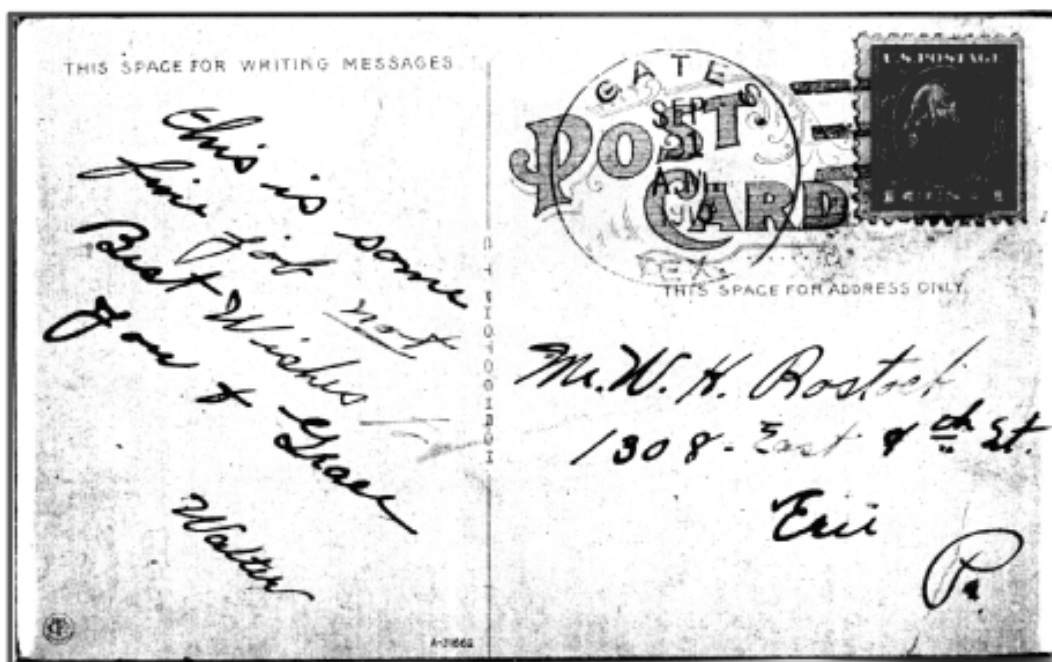 THIS SPACE FOR WRITING MESSAGES
This is some
fine job not
Best Wishes
you & Grace
Walter
A-31662
GATES
SEPT
TEX.
POST
CARD
U.S.POSTAGE
THIS SPACE FOR ADDRESS ONLY.
Mr. W. H. Rostock
1308 - East 9th St.
Erie
Pa.